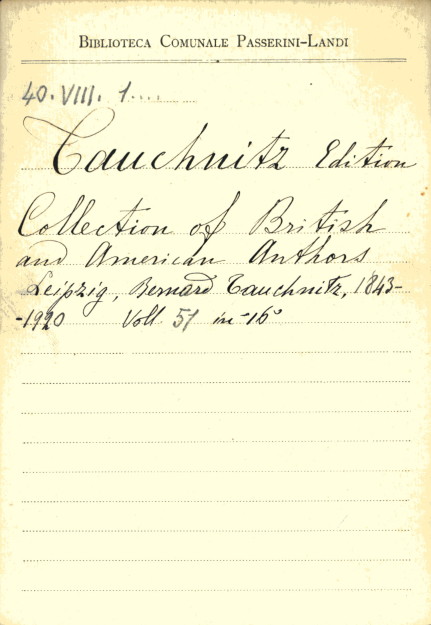 BIBLIOTECA COMUNALE PASSERINI-LANDI
40. VIII. 1....
Tauchnitz Edition
Collection of British
and American Authors
Leipzig, Bernard Tauchnitz, 1843-
-1920 Voll 51 in-16°